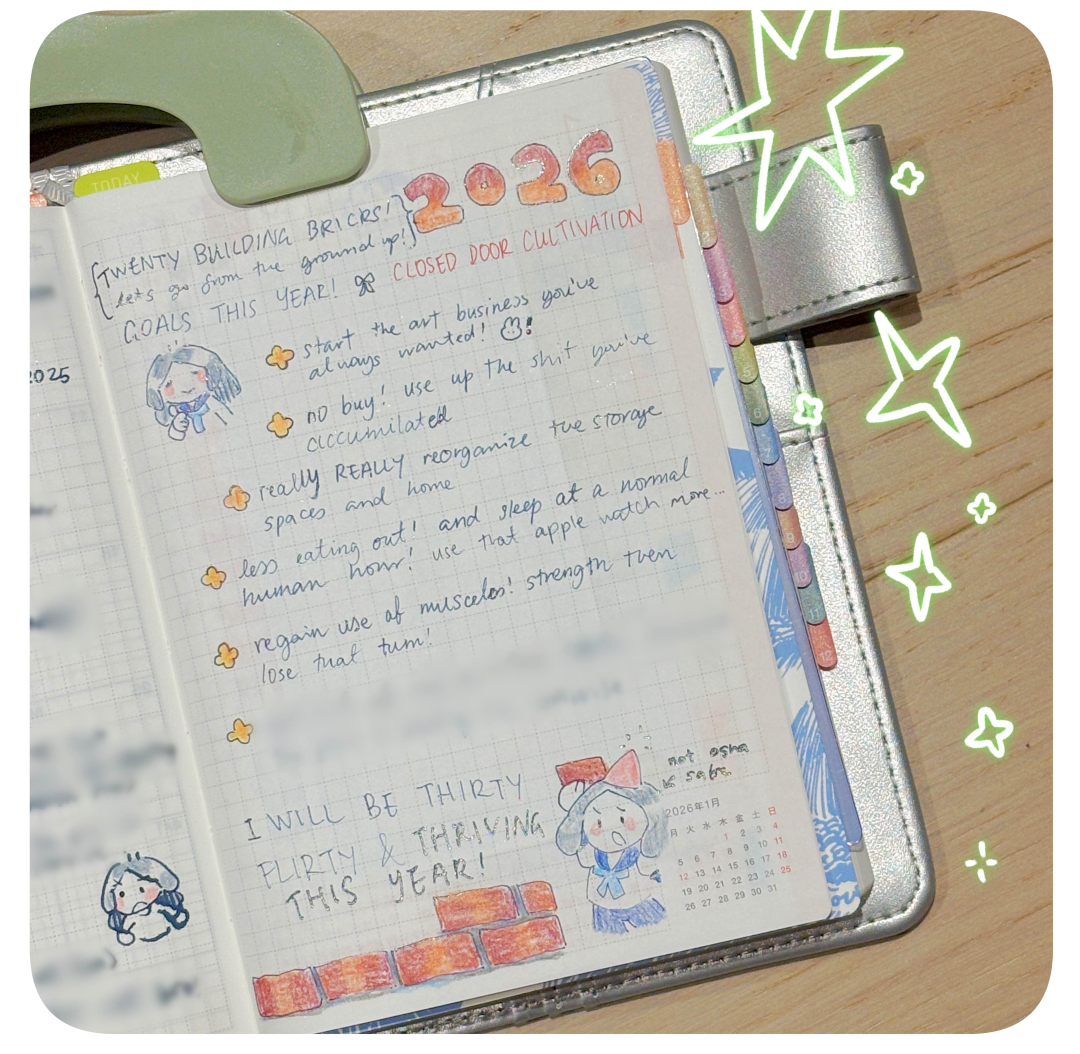 TODAY
2026
TWENTY BUILDING BRICKS!
let's go from the ground up!
CLOSED DOOR CULTIVATION
GOALS THIS YEAR!
start the art business you've
always wanted!
no buy! use up the shit you've
accumilated
really REALLY reorganize the storage
spaces and home
less eating out! and sleep at a normal
human hour! use that apple watch more...
regain use of muscles! strength then
lose that tum!
I WILL BE THIRTY
FLIRTY & THRIVING
THIS YEAR!
not osha
safe
2026年1月
月 火 水 木 金 土 日
1 2 3 4
5 6 7 8 9 10 11
12 13 14 15 16 17 18
19 20 21 22 23 24 25
26 27 28 29 30 31
2025
2
3
5
6
8
9
10
11
12